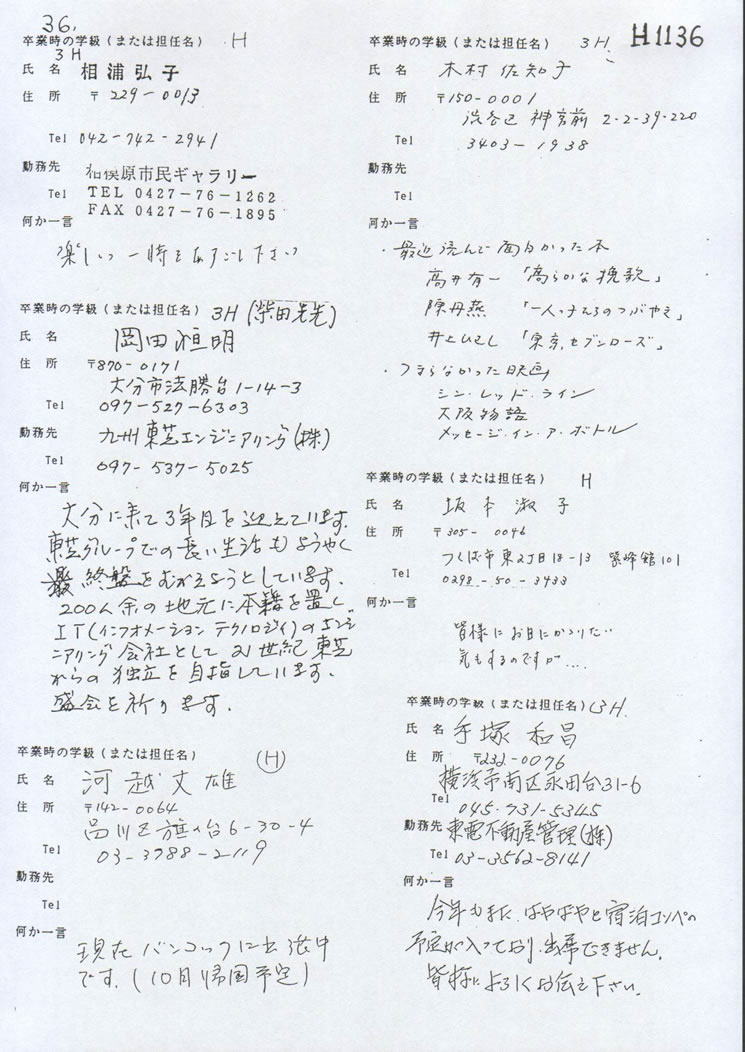 36.
卒業時の学級(または担任名) H
3H
氏 名 相浦弘子
住 所 〒229-0013
Tel 042-742-2941
勤務先 相模原市民ギャラリー
Tel TEL 0427-76-1262
FAX 0427-76-1895
何か一言
楽しい一時をおすごし下さい
卒業時の学級(または担任名) 3H(柴田先生)
氏 名 岡田恒明
住 所 〒870-0171
大分市法勝台1-14-3
Tel 097-527-6303
勤務先 九州東芝エンジニアリング(株)
Tel 097-537-5025
何か一言
大分に来て3年目を迎えています.
東芝グループでの長い生活もようやく
最終盤をむかえようとしています.
200人余の地元に本籍を置く
IT(インフォメーション テクノロジイ)のエンジ
ニアリング会社として21世紀東芝
からの独立を目指しています.
盛会を祈ります.
卒業時の学級(または担任名) (H)
氏 名 河越丈雄
住 所 〒142-0064
品川区旗の台6-30-4
Tel 03-3788-2119
勤務先
Tel
何か一言
現在バンコックに出張中
です.(10月帰国予定)
H1136
卒業時の学級(または担任名) 3H
氏 名 木村佐知子
住 所 〒150-0001
渋谷区神宮前 2-2-39-220
Tel 3403-1938
勤務先
Tel
何か一言
・最近読んで面白かった本
高井有一 「高らかな挽歌」
陳丹燕 「一人っ子たちのつぶやき」
井上ひさし 「東京セブンローズ」
・つまらなかった映画
シン・レッド・ライン
大阪物語
メッセージ・イン・ア・ボトル
卒業時の学級(または担任名) H
氏 名 坂本淑子
住 所 〒305-0046
つくば市東2丁目18-13 紫峰館101
Tel 0298-50-3433
何か一言
皆様にお目にかかりたい
気もするのですが....
卒業時の学級(または担任名) 3H.
氏 名 手塚和昌
住 所 〒232-0076
横浜市南区永田台31-6
Tel 045-731-5345
勤務先 東電不動産管理(株)
Tel 03-3562-8141
何か一言
今年もまた、はやばやと宿泊コンペの
予定が入っており、出席できません。
皆様によろしくお伝え下さい。